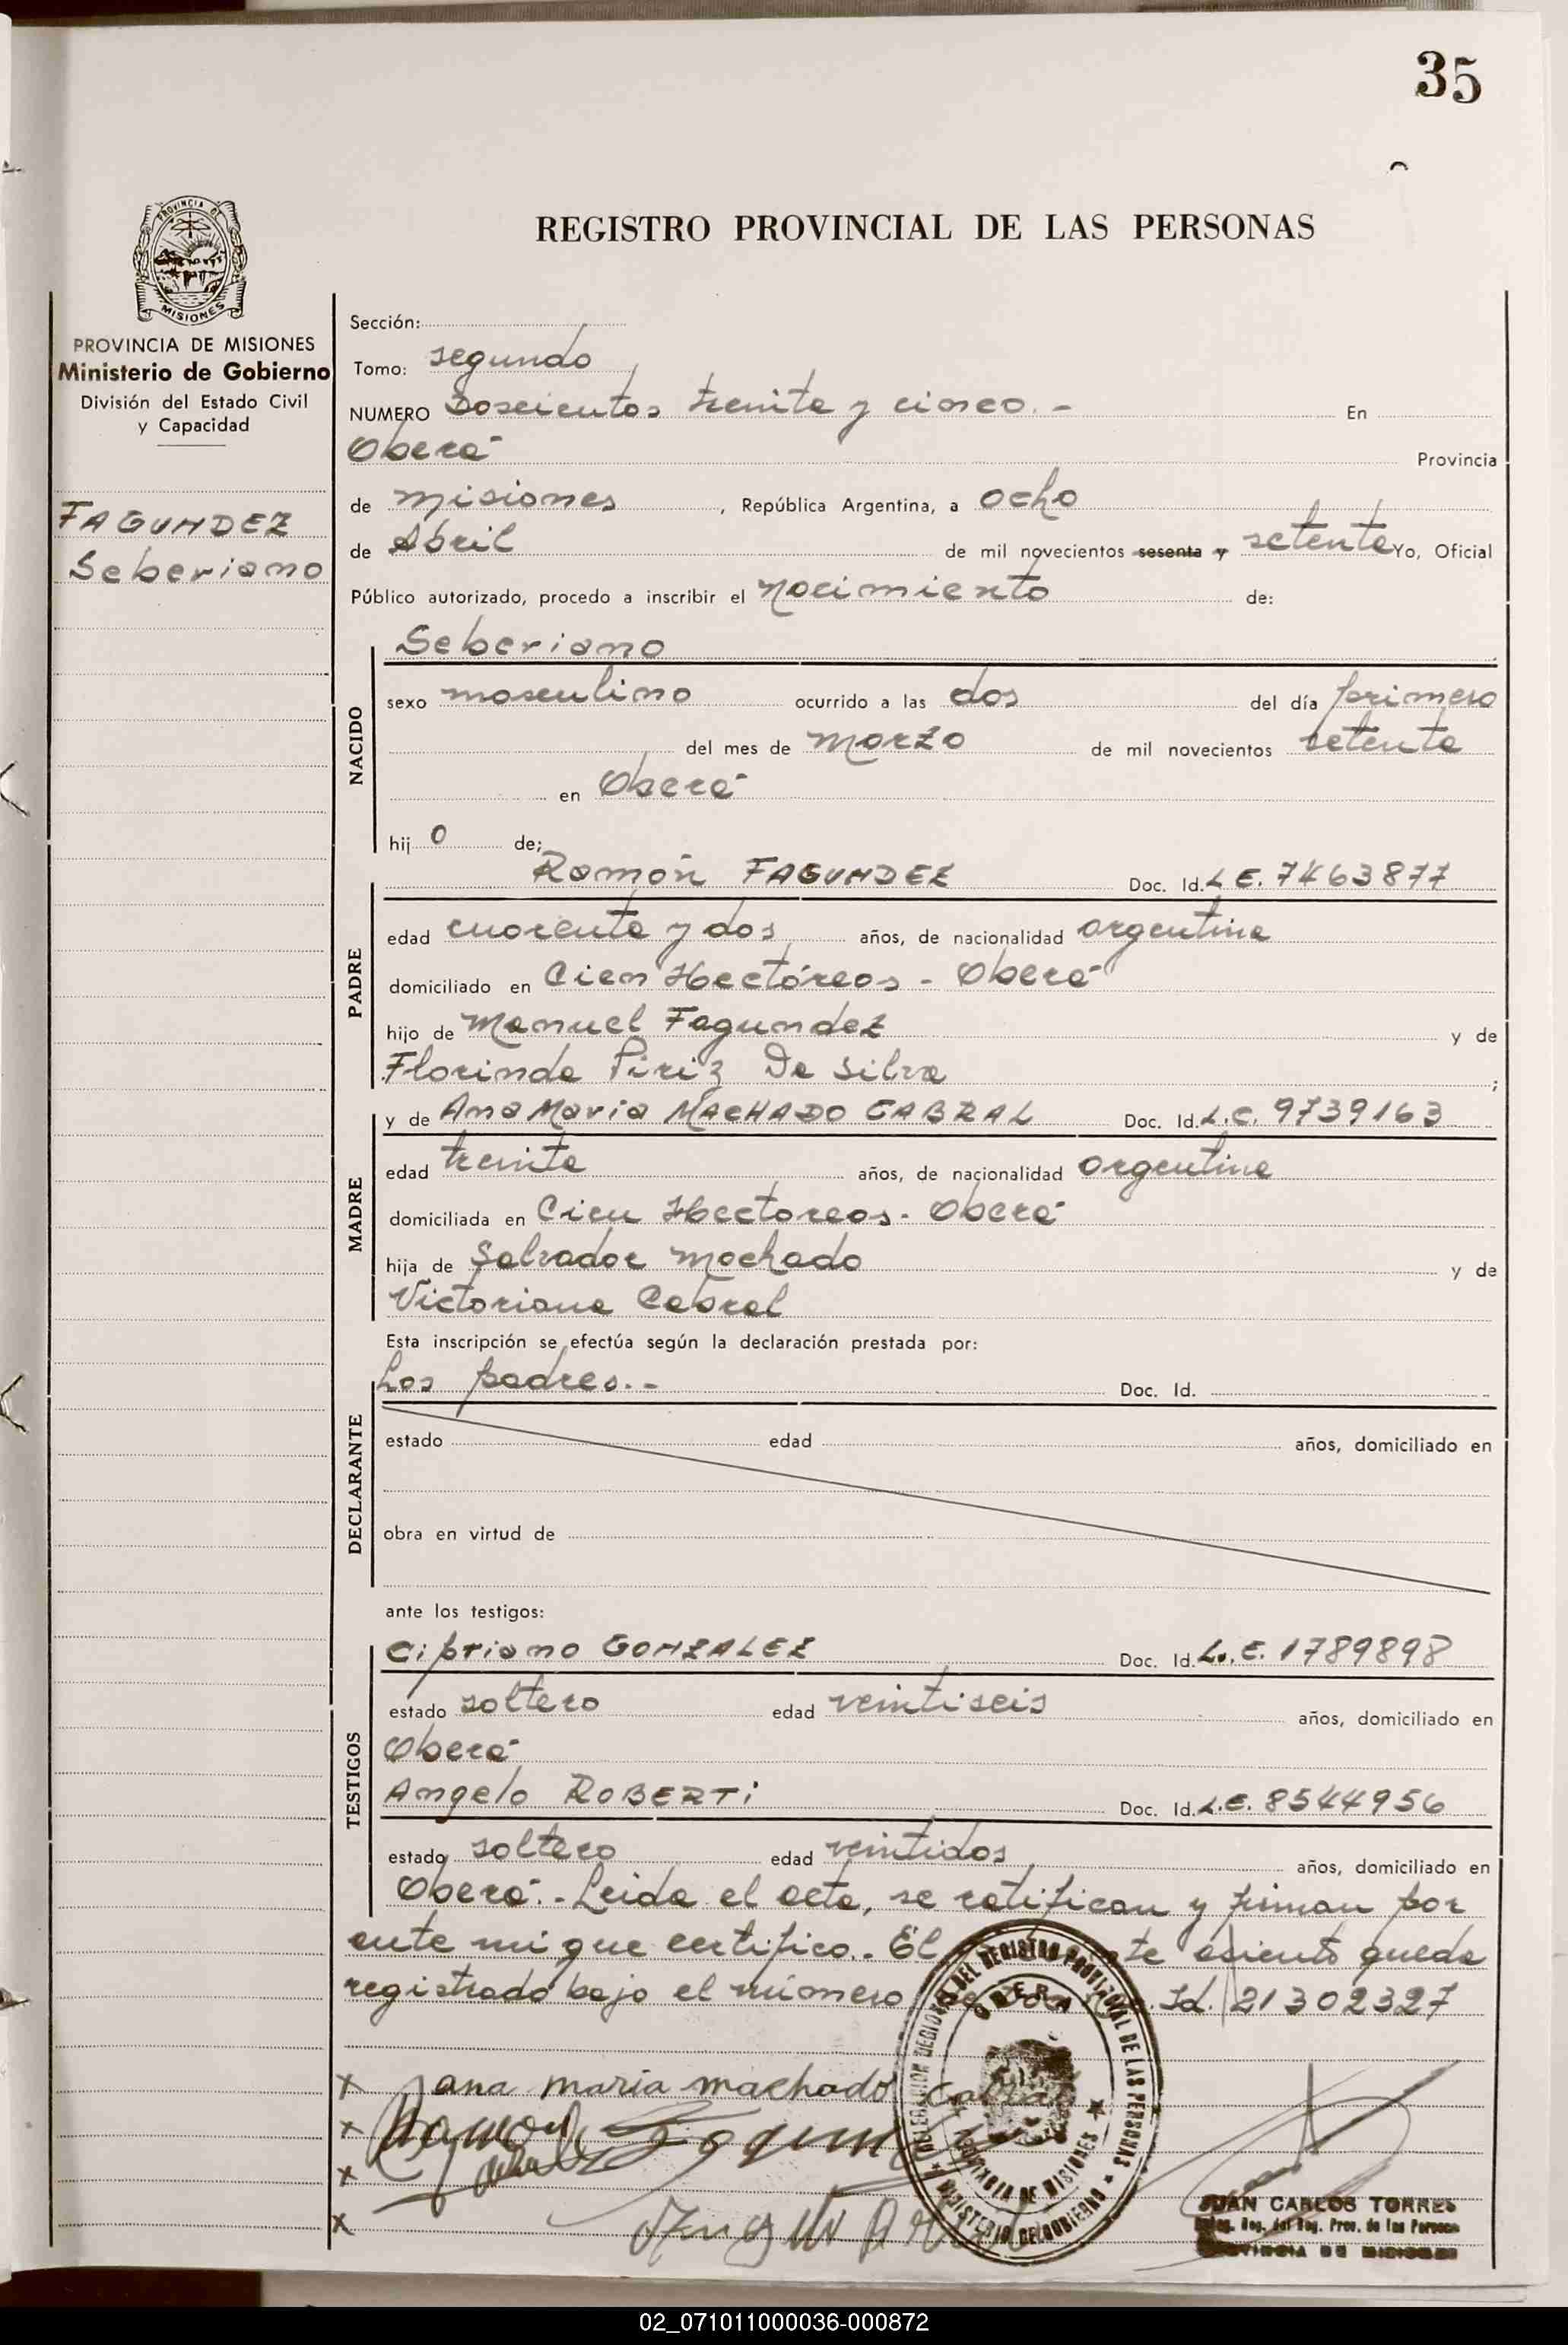 35
REGISTRO PROVINCIAL DE LAS PERSONAS
PROVINCIA DE
MISIONES
PROVINCIA DE MISIONES
Ministerio de Gobierno
División del Estado Civil
y Capacidad
FAGUNDEZ
Seberiano
Sección:
Tomo: segundo
NUMERO Doscientos treinta y cinco.- En
Oberá Provincia
de Misiones, República Argentina, a ocho
de Abril de mil novecientos sesenta y setenta Yo, Oficial
Público autorizado, procedo a inscribir el Nacimiento de:
NACIDO
Seberiano
sexo masculino ocurrido a las dos del día primero
del mes de Marzo de mil novecientos setenta
en Oberá
hijo de;
PADRE
Ramón FAGUNDEZ Doc. Id. L E. 7463877
edad cuarenta y dos años, de nacionalidad argentina
domiciliado en Cien Hectáreas - Oberá
hijo de Manuel Fagundez y de
Florinda Piriz Da Silva;
MADRE
y de Ana Maria MACHADO CABRAL Doc. Id. L.C. 9739163
edad treinta años, de nacionalidad argentina
domiciliada en Cien Hectareas - Oberá
hija de Salvador Machado y de
Victoriana Cabral
Esta inscripción se efectúa según la declaración prestada por:
DECLARANTE
Los padres.- Doc. Id.
estado edad años, domiciliado en
obra en virtud de
ante los testigos:
TESTIGOS
Cipriano GONZALEZ Doc. Id. L.E. 1789898
estado soltero edad veintiseis años, domiciliado en
Oberá
Angelo ROBERTi Doc. Id. L.E. 8544956
estado soltero edad veintidos años, domiciliado en
Oberá.- Leida el acta, se ratifican y firman por
ante mi que certifico.- El te asiento queda
registrado bajo el número Id. 21302327
DELEGACION REGIONAL DEL REGISTRO PROVINCIAL DE LAS PERSONAS
OBERA
PROVINCIA DE MISIONES
MINISTERIO DE GOBIERNO
x ana maria machado Cabral
x Ramon
x
x
JUAN CARLOS TORRES
Deleg. Reg. del Reg. Prov. de las Personas
PROVINCIA DE MISIONES
02_071011000036-000872